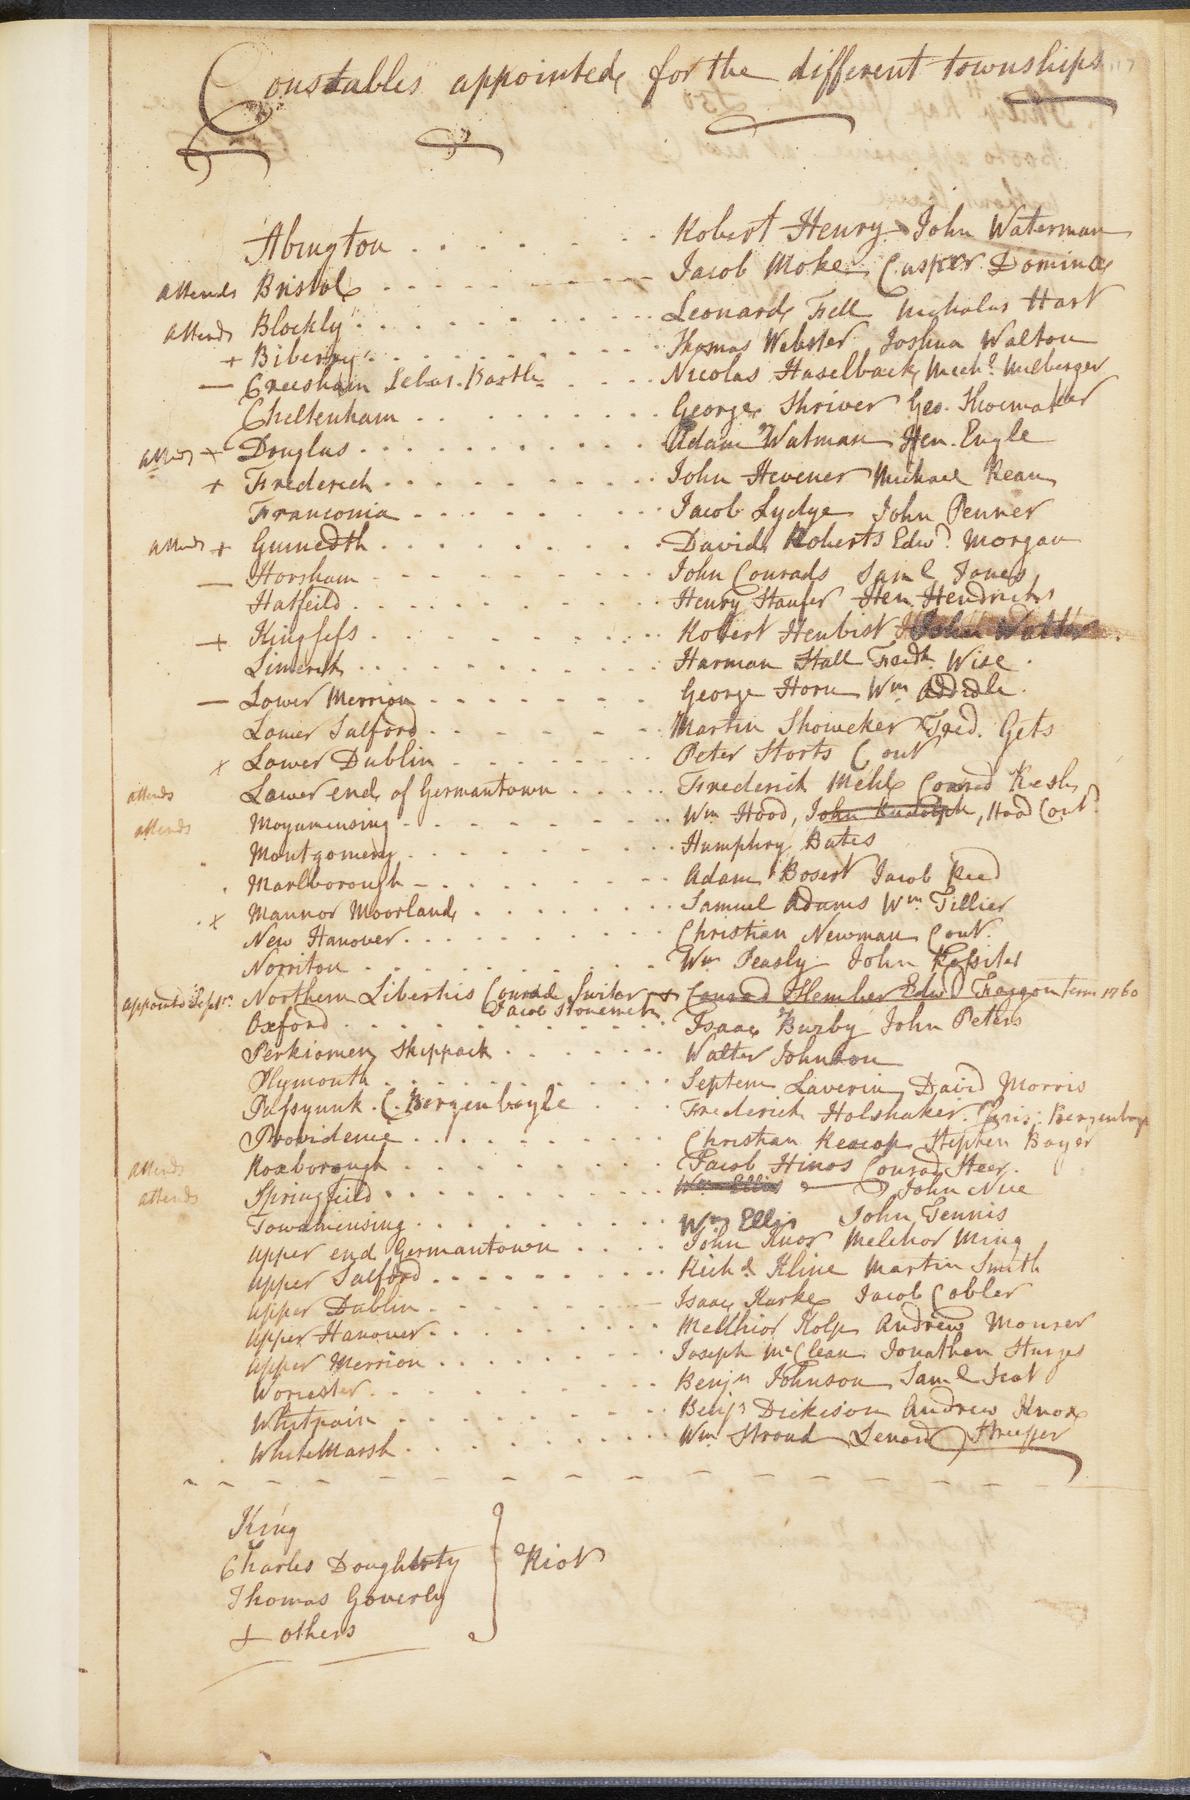 Constables appointed for the different townships
Abington Robert Henry John Waterman
attends Bristol Jacob Moke Casper Domince
attends Blockly Leonard Fell Nicholas Hart
+ Biberry Thomas Webster Joshua Walton
— Creesham Sebas. Bastle Nicolas Haselback Mich.l Milberger
Cheltenham George Shriver Geo. Shoemaker
attends + Douglas Adam Watman Hen. Engle
+ Frederick John Hevener Michael Kean
Franconia Jacob Lydye John Penner
attends + Guinedth David Roberts Edwd. Morgan
— Horsham John Conrads Saml Jones
Hatfeild Henry Staufer Hen. Hendricks
+ Kingsess Robert Henbist John Walter
Limerick Harman Stall Fredk. Wise
— Lower Merrion George Horn Wm
Lower Salford Martin Showeker Fred. Gets
x Lower Dublin Peter Storts Cont
attends Lower end of Germantown Frederick Mehl Conrad Resh
attends Moyamensing Wm Hood, John Rudolph, Hood Cont.
Montgomery Humphry Bates
Marlborough Adam Bosert Jacob Reed
x Mannor Moorland Samuel Adams Wm. Tillier
New Hanover Christian Newman Cont.
Norriton Wm Peasly John
appointd Septr. Northern Liberties Conrad Switer + Conrad Hember Edwd Term 1760
Jacob
Oxford Isaac Buzby John Peters
Perkiomen Skippack Walter Johnson
Plymouth Septem Laverin David Morris
Passyunk C. Bergenboyle Frederick Holshaker Chris: Bergenboyl
Providence Christian Stephen Boyer
attends Roxborough Jacob Hinos Conrad Steer
attends Springfield Wm Ellis John Nice
Towamensing Wm Ellis John Tennis
Upper end Germantown John Knor Melchor Ming
Upper Salford Richd Kline Martin Smith
Upper Dublin Isaac Kirke Jacob Cobler
Upper Hanover Melchior Kolp Andrew Mourer
Upper Merrion Joseph McClean Jonathan Sturges
Worcester Benjn Johnson Saml Scot
Whitpain Benjn Dickison Andrew Knox
WhiteMarsh Wm Stroud Lenord Streeper
King
Charles Dougherty
Riot
Thomas Goverly
+ others